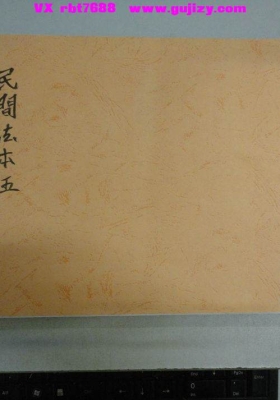 VX rbt7688 www.gujizy.com
民間法本五